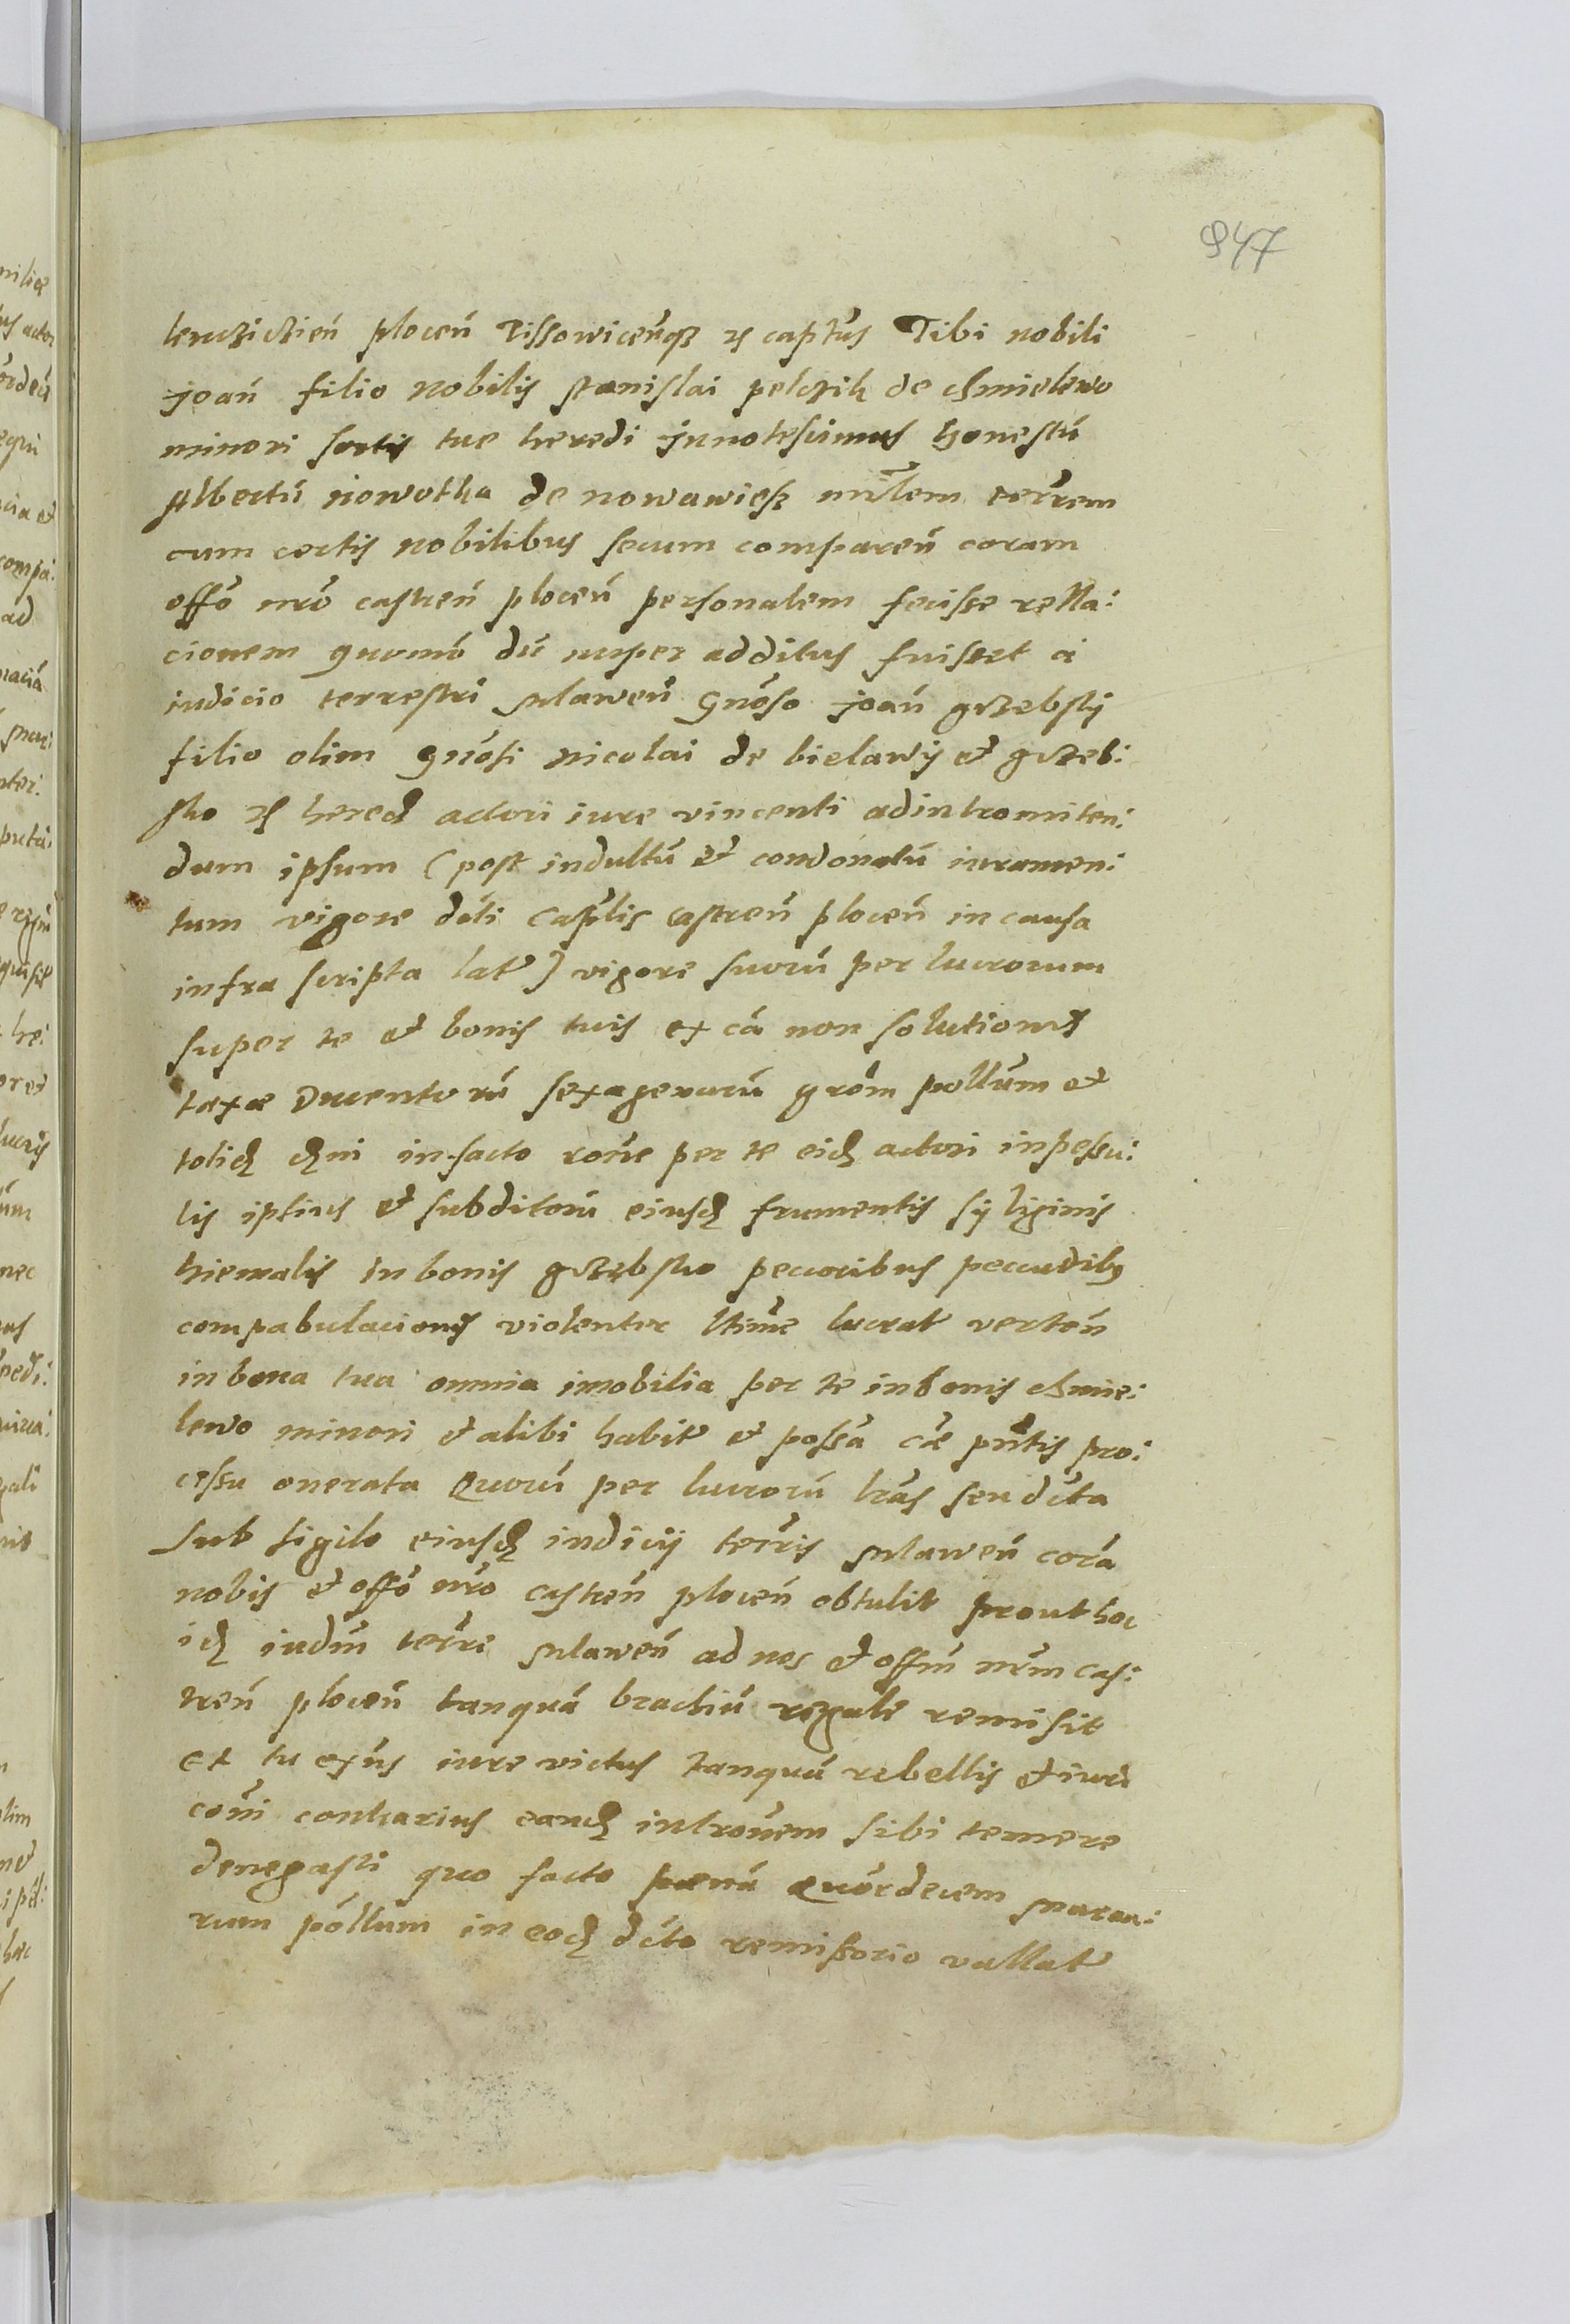 947
lencziczien̄ plocen̄ Tissowicen̄qz &c capt̄us Tibi nobili
joan̄ filio nobilis stanislai pelczik de chmielewo
minori sortis tue heredi jnnotescimus honestū
Albertū nowotka de nowawiesz mīlem terr̄em
cum certis nobilibus secum comparen̄ coram
offō nrō castren̄ plocen̄ personalem fecisse rella:
cionem quomō dū nuper additus fuisset a
iudicio terrestri mlawen̄ gnōso joan̄ grzebsky
filio olim gnōsi nicolai de bielawy et grzeb:
sko &c hered actori iure vincenti adintromiten:
dum ipsum (post indultū et condonatū iuramen:
tum vigore dcti capt̄lis castren̄ plocen̄ in causa
infra scripta lat) vigore suorū per lucrorum
super te et bonis tuis ex cā non solutionis
taxae Ducentorū sexagenarū grōm pollūm et
totid dni in facto rone per te eid actori inpessu:
lis ipsius et subditorū eiusd frumentis syliginis
hiemalis in bonis grzebsko peccoribus peccudibus
compabulacionis violenter ltime lucrat verten̄
in bona tua omnia imobilia per te in bonis chmie:
lewo minori et alibi habit et possā cāe pn̄tis pro:
cessu onerata Quorū per lucrorū lrās seu dcta
sub sigilo eiusd iudicij terr̄is mlawen̄ corā
nobis et offō nrō castren̄ plocen̄ obtulit prout hoc
id iudm̄ terr̄e mlawen̄ ad nos et offm̄ nrm̄ cas:
tren̄ plocen̄ tanquā brachiū regale remisit
et tu exn̄s iure victus tanquā rebellis et iuri
cōni contrarius eand intronem sibi temere
denegasti quo facto pœnā quordecem marca:
rum pōllum in eod dcto remissorio vallat